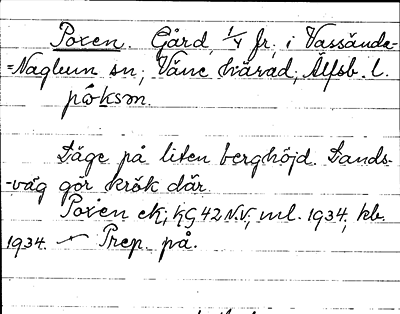 Poxen. Gård, 1/4 fr, i Vassända-
=Naglum sn, Väne härad, Älfsb. l.
pòksøn.
Läge på liten berghöjd. Lands-
-väg gör krök där.
Poxen ek, KG 42 N.V, ml. 1934, kb.
1934. — Prep. på.